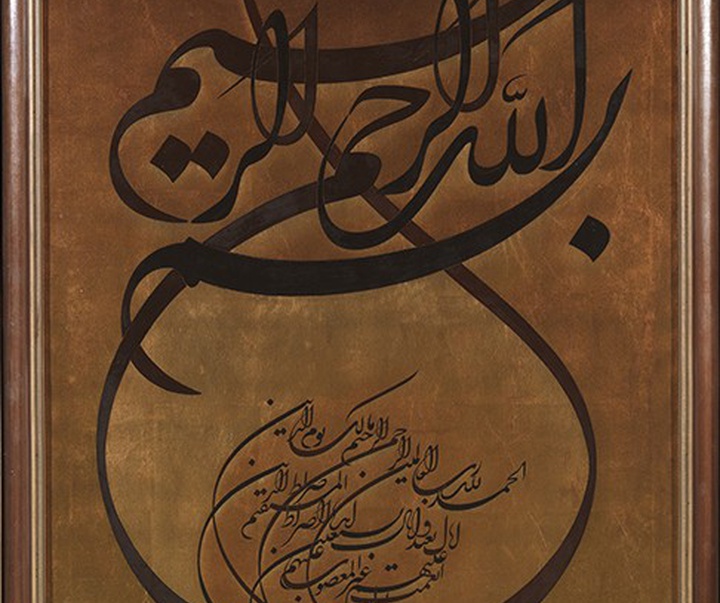 بسم الله الرحمن الرحیم
الحمد لله رب العالمین الرحمن الرحیم مالک یوم الدین
ایاک نعبد و ایاک نستعین اهدنا الصراط المستقیم صراط الذین
انعمت علیهم غیر المغضوب علیهم